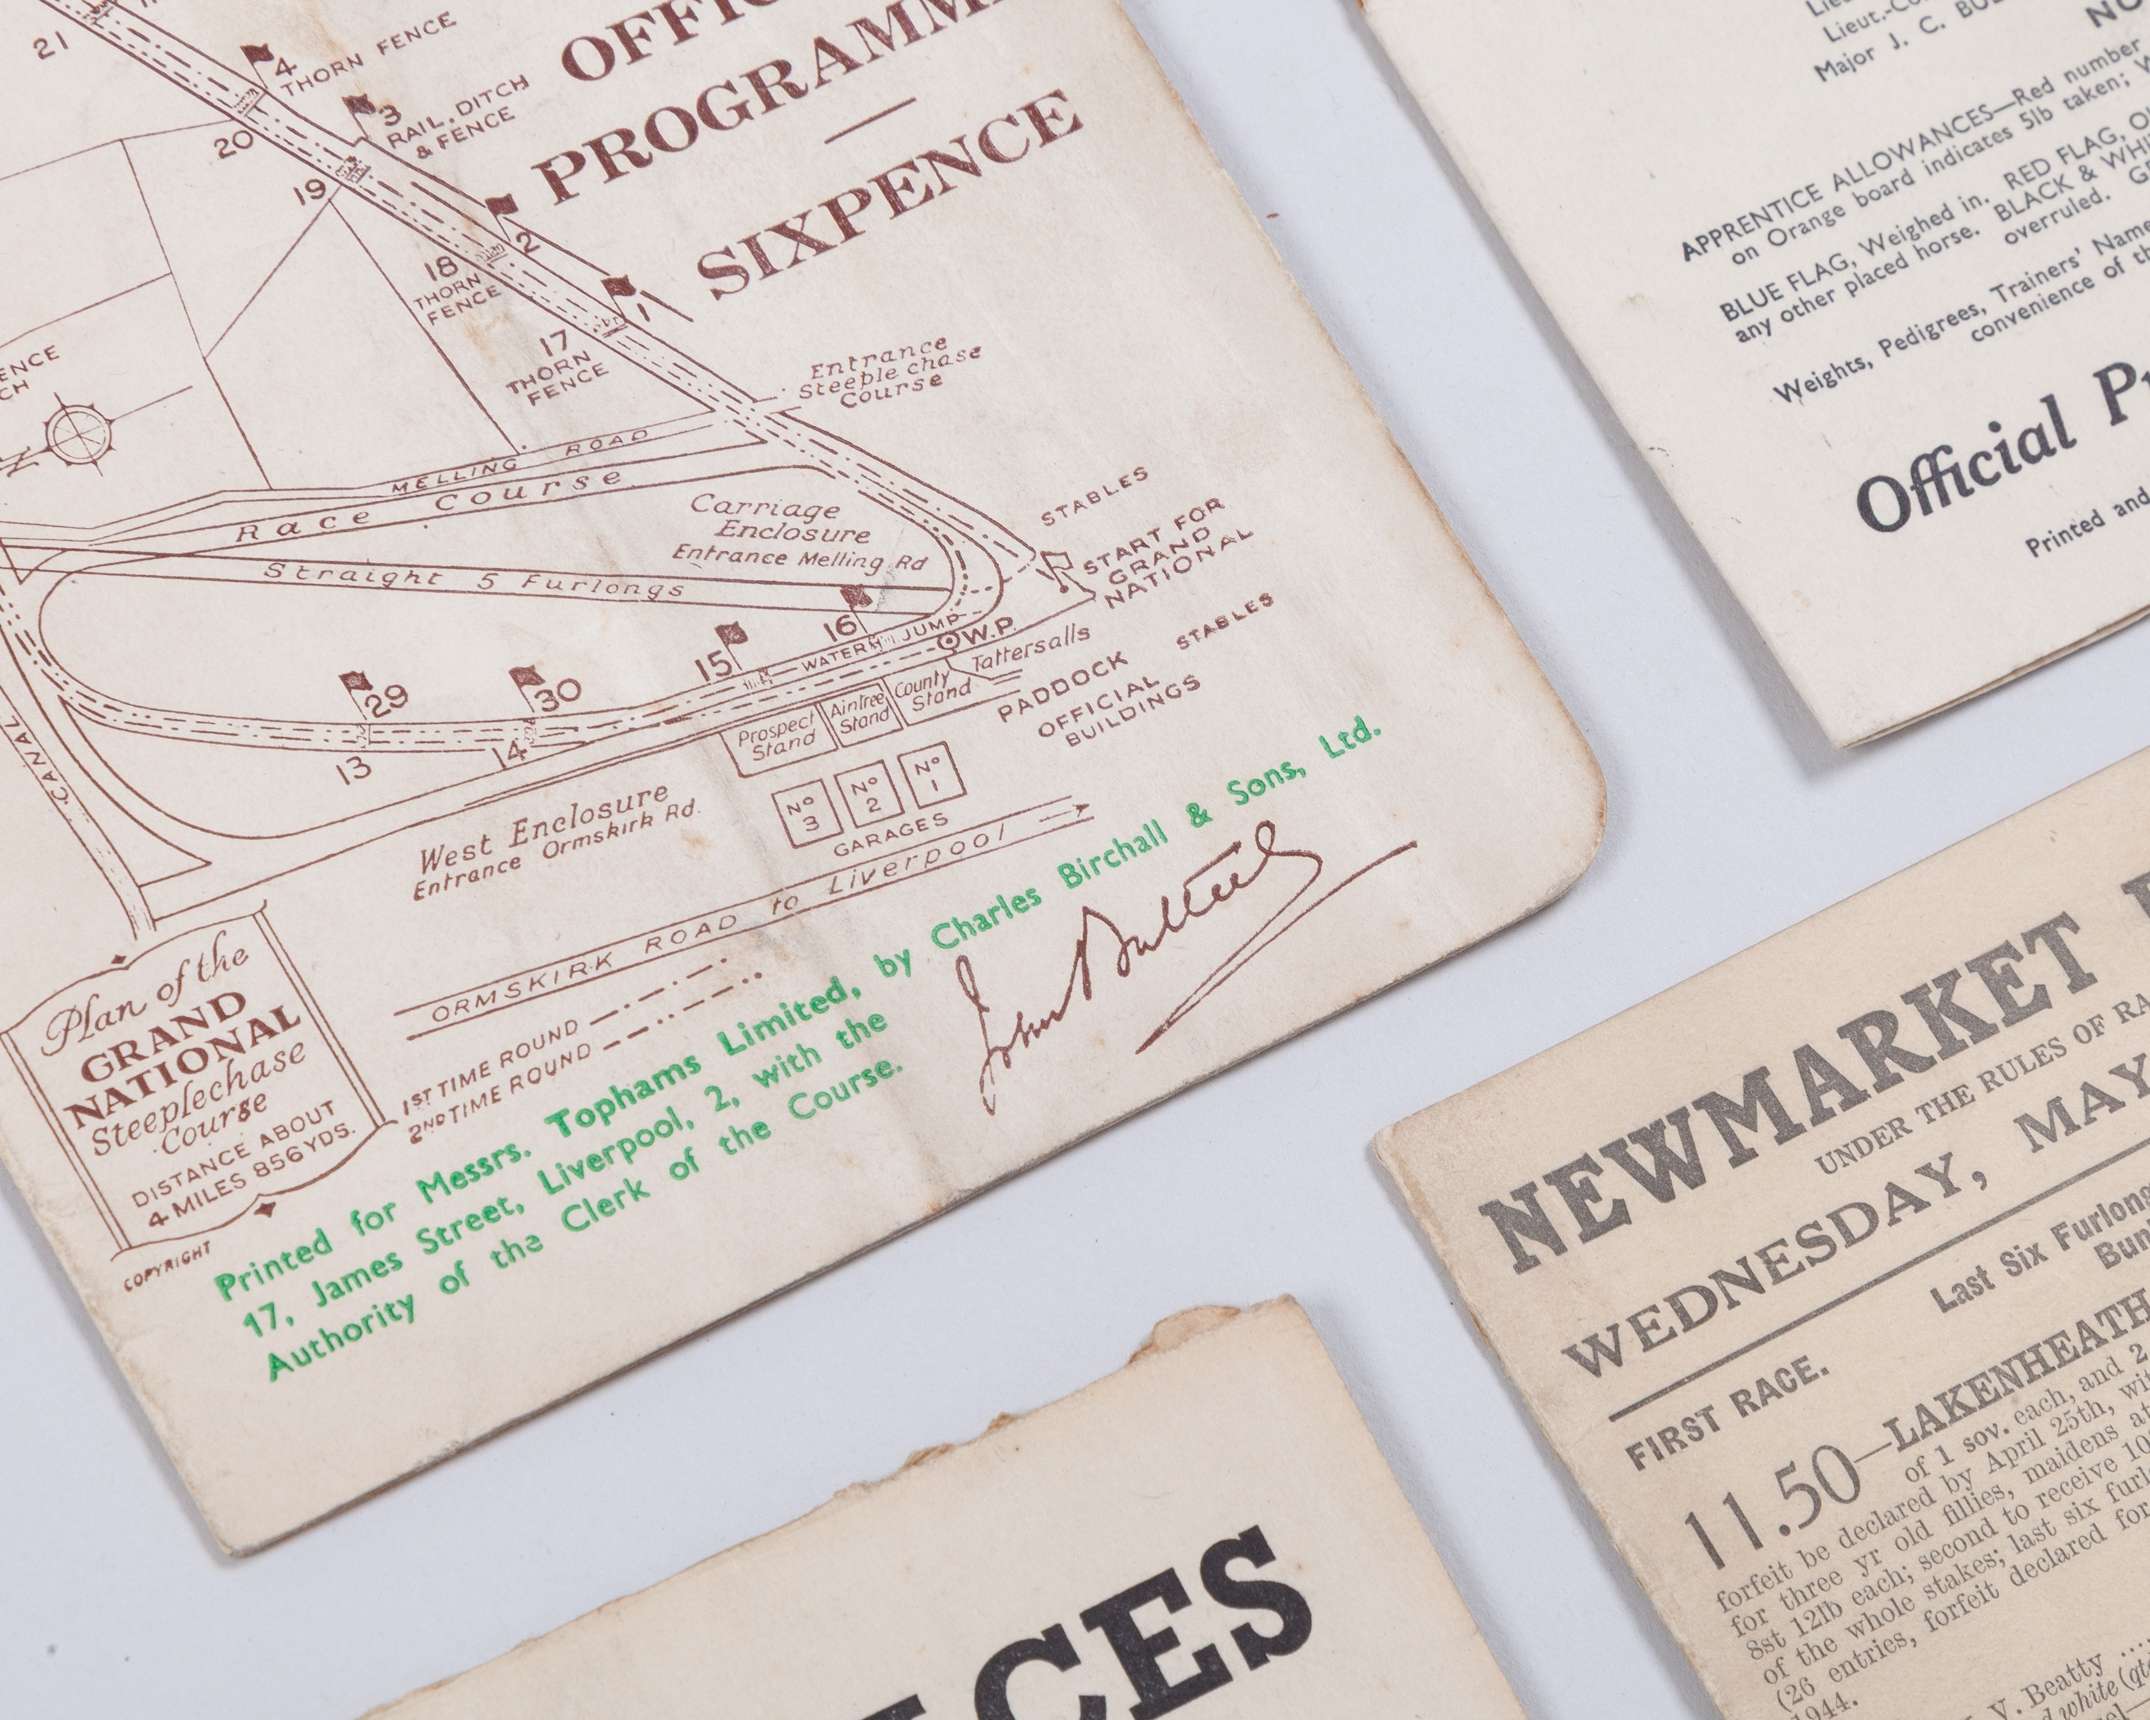 OFFIC
PROGRAMM
SIXPENCE
21
4
THORN FENCE
3
RAIL, DITCH
& FENCE
20
19
2
18
THORN
FENCE
1
17
THORN
FENCE
ENCE
CH
N
Entrance
Steeple chase
Course
MELLING ROAD
Race Course
Carriage
Enclosure
Entrance Melling Rd
Straight 5 Furlongs
STABLES
START FOR
GRAND
NATIONAL
16
WATER JUMP
W.P.
15
Tattersalls
STABLES
PADDOCK
OFFICIAL
BUILDINGS
29
30
13
14
County
Stand
Aintree
Stand
Prospect
Stand
CANAL
No
3
No
2
No
1
GARAGES
West Enclosure
Entrance Ormskirk Rd.
ORMSKIRK ROAD to Liverpool
1ST TIME ROUND
2ND TIME ROUND
Plan of the
GRAND
NATIONAL
Steeplechase
Course
DISTANCE ABOUT
4 MILES 856 YDS.
COPYRIGHT
Printed for Messrs. Tophams Limited, by Charles Birchall & Sons, Ltd.
17, James Street, Liverpool, 2, with the
Authority of the Clerk of the Course.
John
Lieut.-Co
Major J. C. BU
NO
APPRENTICE ALLOWANCES—Red number
on Orange board indicates 5lb taken;
BLUE FLAG, Weighed in. RED FLAG, O
any other placed horse. BLACK & WHI
overruled. G
Weights, Pedigrees, Trainers' Name
convenience of th
Official P
Printed and
NEWMARKET
UNDER THE RULES OF RA
WEDNESDAY, MAY
Last Six Furlong
Bun
FIRST RACE.
11.50—LAKENHEATH
of 1 sov. each, and 2
forfeit be declared by April 25th, wit
for three yr old fillies, maidens at
8st 12lb each; second to receive 10
of the whole stakes; last six furl
(26 entries, forfeit declared for
1944.
V. Beatty
d white (qt
CES